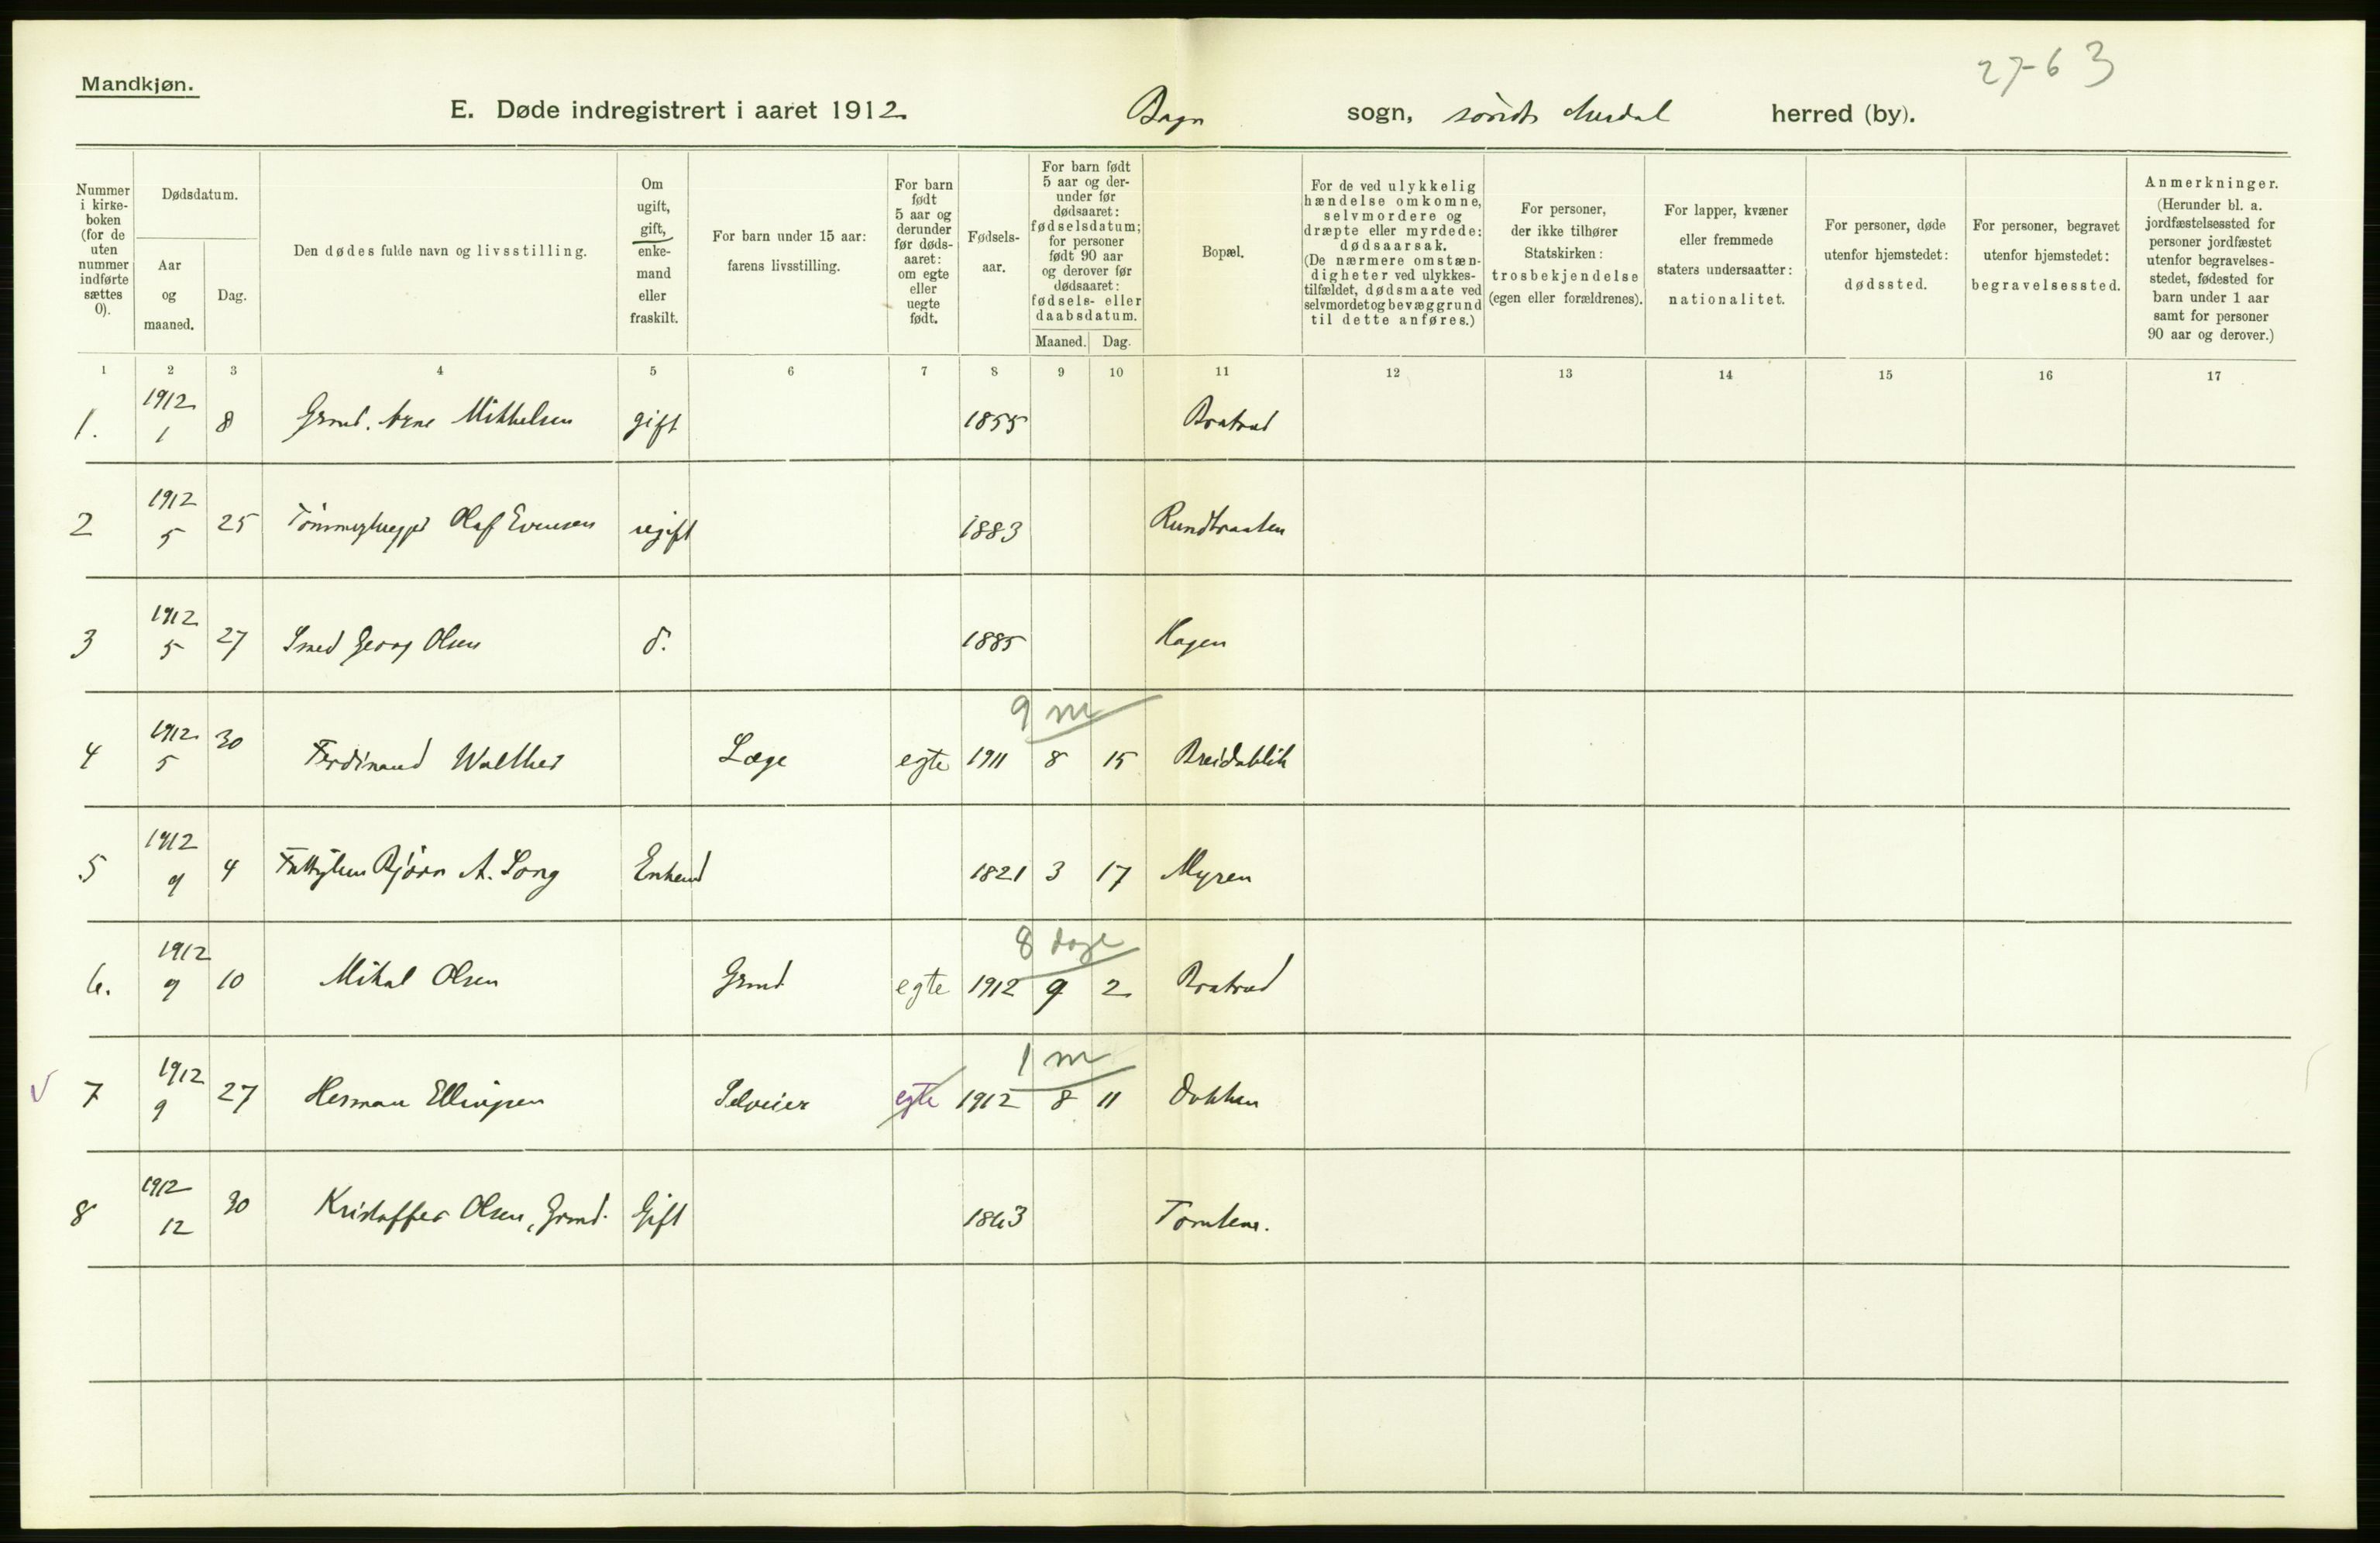 27-6 3
Mandkjøn.
E. Døde indregistrert i aaret 1912. Bagn sogn, søndre Aurdal herred (by).
Nummer i kirke-boken (for de uten nummer indførte sættes 0).
Dødsdatum.
Aar og maaned.
Dag.
Den dødes fulde navn og livsstilling.
Om ugift, gift, enke-mand eller fraskilt.
For barn under 15 aar: farens livsstilling.
For barn født 5 aar og derunder før døds-aaret: om egte eller uegte født.
Fødsels-aar.
For barn født 5 aar og der-under før dødsaaret: fødselsdatum; for personer født 90 aar og derover før dødsaaret: fødsels- eller daabsdatum.
Maaned. Dag.
Bopæl.
For de ved ulykkelig hændelse omkomne, selvmordere og dræpte eller myrdede: dødsaarsak. (De nærmere omstæn-digheter ved ulykkes-tilfældet, dødsmaate ved selvmordet og bevæggrund til dette anføres.)
For personer, der ikke tilhører Statskirken: trosbekjendelse (egen eller forældrenes).
For lapper, kvæner eller fremmede staters undersaatter: nationalitet.
For personer, døde utenfor hjemstedet: dødssted.
For personer, begravet utenfor hjemstedet: begravelsessted.
Anmerkninger. (Herunder bl. a. jordfæstelsessted for personer jordfæstet utenfor begravelses-stedet, fødested for barn under 1 aar samt for personer 90 aar og derover.)
1 2 3 4 5 6 7 8 9 10 11 12 13 14 15 16 17
1. 1912 1 8 Grmd. Arne Mikkelsen gift 1855 Bratrud
2 1912 5 25 Tømmerhugger Olaf Evensen ugift 1883 Rundtraaten
3 1912 5 27 Smed Georg Olsen d. 1885 Hagen
9 m
4 1912 5 30 Ferdinand Walther Læge egte 1911 8 15 Breidablik
5 1912 9 4 Bjørn A. Song Enkemd 1821 3 17 Myren
8 dage
6. 1912 9 10 Mikal Olsen Grmd egte 1912 9 2 Bratrud
1 m
7 1912 9 27 Herman Ellingsen Selveier egte 1912 8 11 Dokken
8 1912 12 30 Kristoffer Olsen, Grmd. Gift 1863